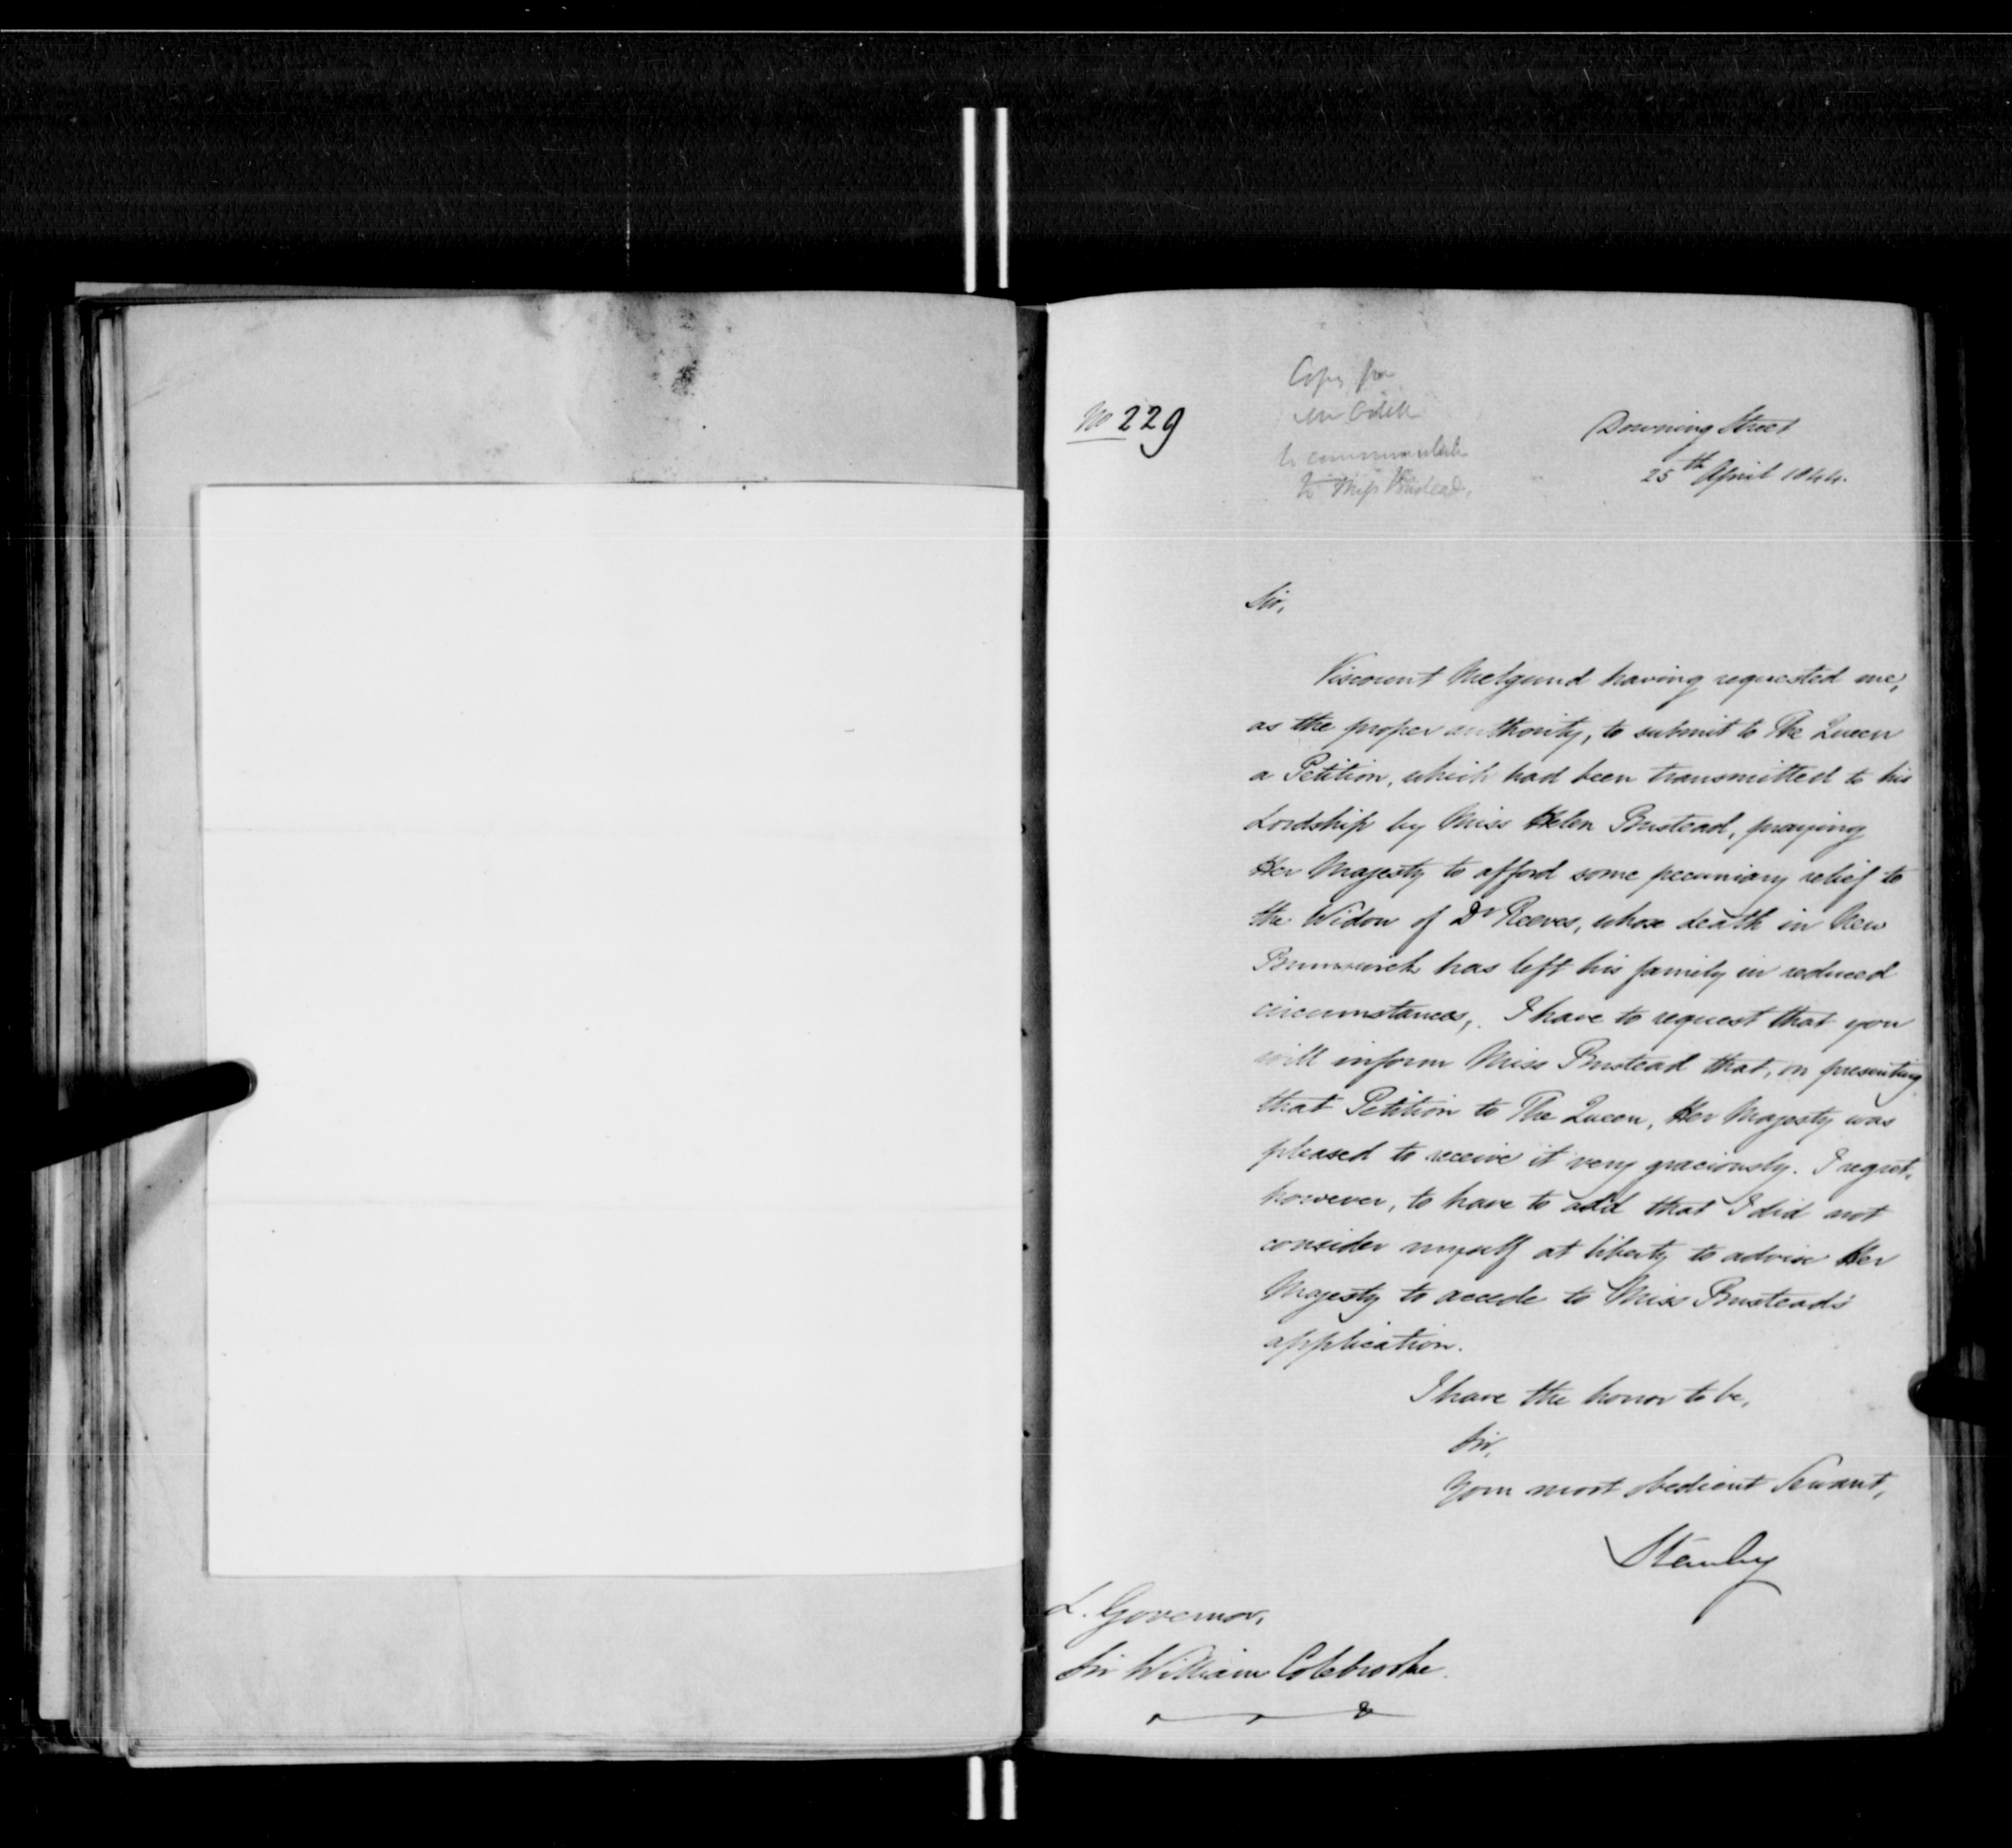 No 229
Copy for
Mr Odell
to communicate
to Miss Bustead.
Downing Street
25th April 1844.
Sir,
Viscount Melgund having requested me,
as the proper authority, to submit to The Queen
a Petition, which had been transmitted to his
Lordship by Miss Helen Bustead, praying
Her Majesty to afford some pecuniary relief to
the Widow of Dr Reeves, whose death in New
Brunswick has left his family in reduced
circumstances, I have to request that you
will inform Miss Bustead that, on presenting
that Petition to The Queen, Her Majesty was
pleased to receive it very graciously. I regret,
however, to have to add that I did not
consider myself at liberty to advise Her
Majesty to accede to Miss Bustead's
application.
I have the honor to be,
Sir,
Your most obedient Servant,
Stanley
L. Governor,
Sir William Colebrooke.